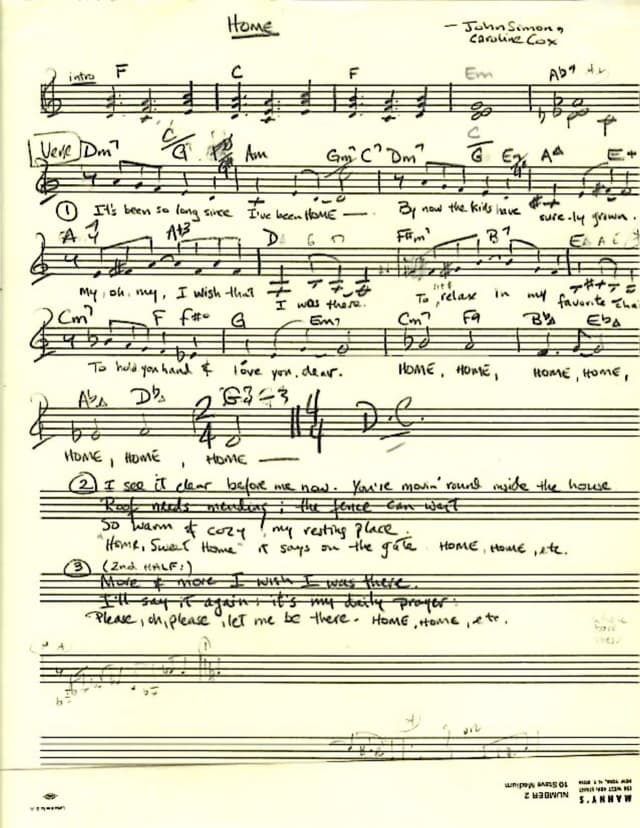 HOME
— John Simon,
Caroline Cox
intro F C F Em Ab7
Verse Dm7 C/G Am Gm7 C7 Dm7 C/G E7 A E+
① It's been so long since I've been HOME — By now the kids have sure-ly grown.
A A+3 D G F#m7 B7 E A
My, oh, my, I wish that I was there. To relax in my favorite chai
Cm7 F F#o G Em7 Cm7 F9 Bb△ Eb△
To hold you hand & love you, dear. HOME, HOME, HOME, HOME,
Ab△ Db△ 2/4 4/4 D.C.
HOME, HOME, HOME —
② I see it clear before me now. You're movin' round inside the house
Roof needs mending; the fence can wait
So warm & cozy, my resting place.
"Home, Sweet Home" it says on the gate HOME, HOME, etc.
③ (2nd HALF:)
More & more I wish I was there.
I'll say it again: it's my daily prayer:
Please, oh, please, let me be there. HOME, HOME, etc.
MANNY'S
156 WEST 48th STREET
NEW YORK, N.Y. 10036
NUMBER 2
10 Stave Medium